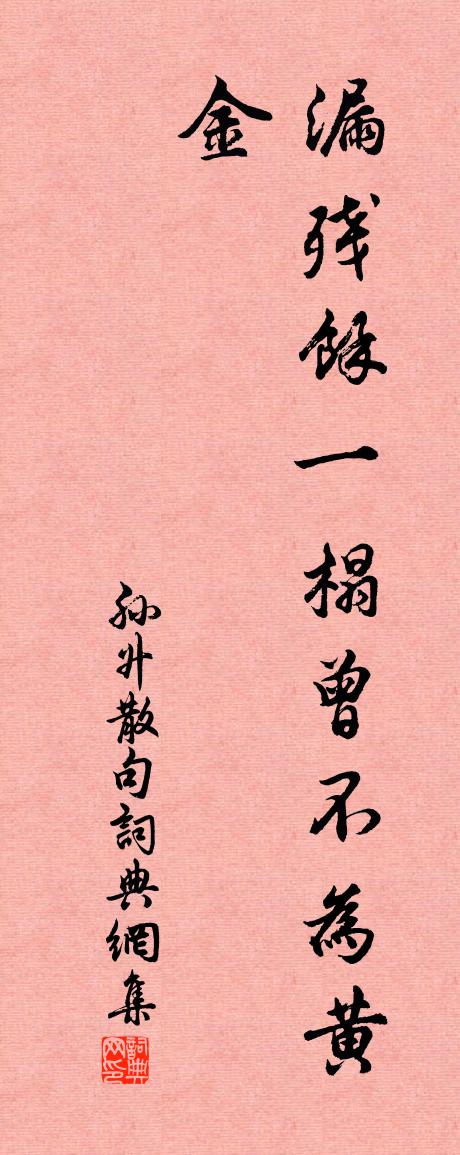 漏残餘一榻曾不為黄
金
孙升散句詞典網集
詞典网印